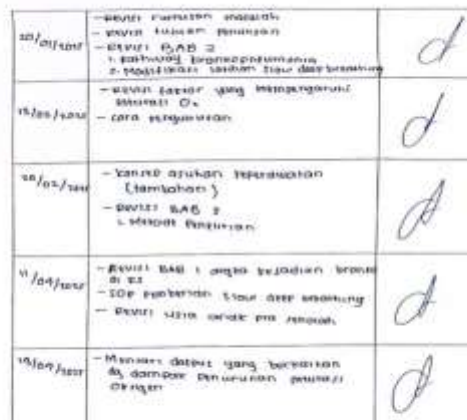 - Revisi rumusan masalah
- Revisi tujuan penulisan
- Revisi BAB 2
1. Pathway bronkopneumonia
2. Modifikasi latihan slow deep breathing
- Revisi faktor yang mempengaruhi
saturasi O₂
- cara pengukuran
- konsep asuhan keperawatan
(tambahan)
- Revisi BAB 3
1. Metode Penelitian
- Revisi BAB 1 angka kejadian bronko
di RS
- SOP pemberian slow deep breathing
- Revisi usia anak pra sekolah
- Mencari yang berkaitan
dg dampak Penurunan saturasi
Oksigen